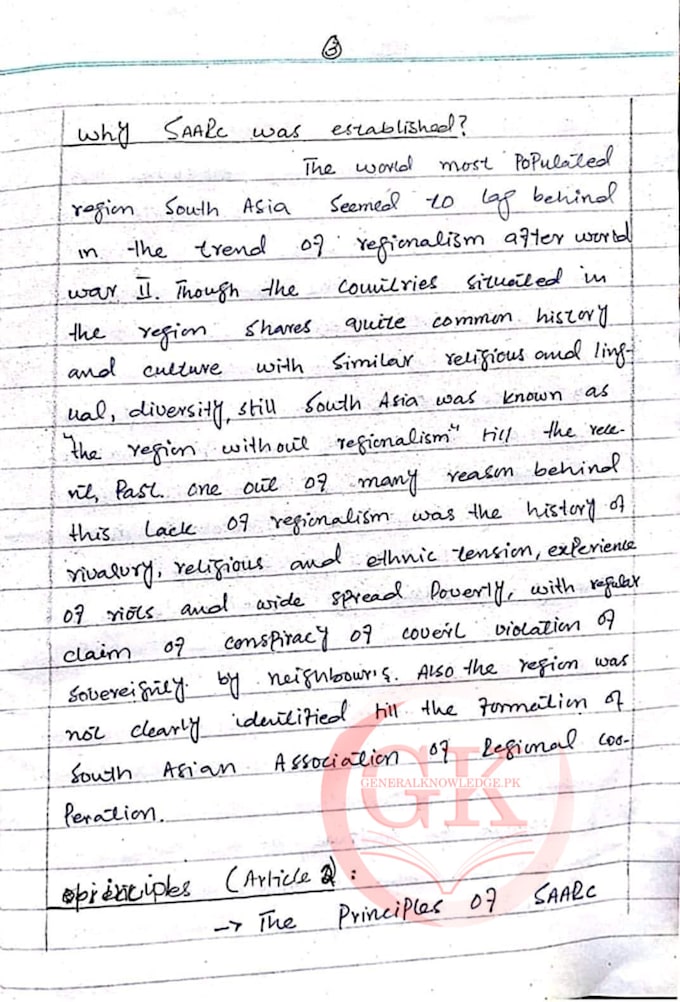 3
Why SAARC was established?
The world most Populated
region South Asia Seemed to lag behind
in the trend of regionalism after world
war II. Though the countries situated in
the region shares quite common history
and culture with similar religious and ling-
ual, diversity, still South Asia was known as
"the region without regionalism" till the rece-
nt, Past. one out of many reason behind
this lack of regionalism was the history of
rivalury, religious and ethnic tension, experience
of riots and wide spread Poverly, with regular
claim of conspiracy of covert violation of
sovereignty by neighbour's. Also the region was
not clearly identified till the Formation of
South Asian Association of Regional coo-
Peration.
GK
GENERALKNOWLEDGE.PK
principles (Article 2) :
→ The Principles of SAARC